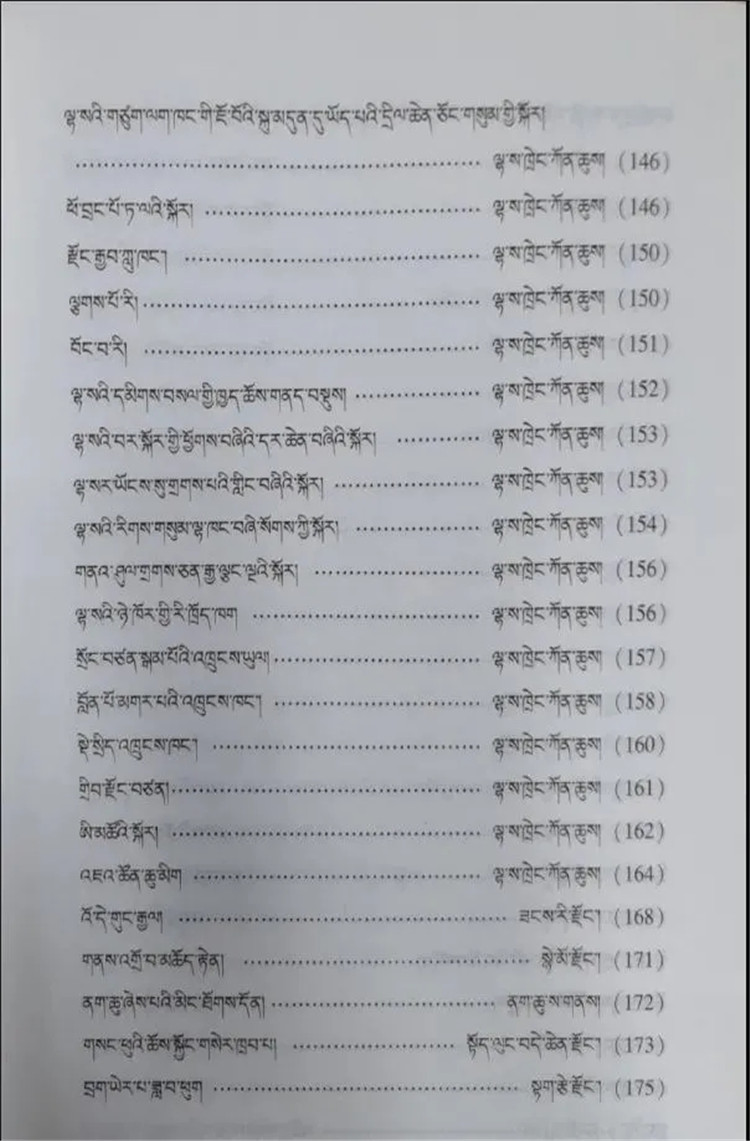 ལྷ་སའི་གཙུག་ལག་ཁང་གི་ཇོ་བོའི་སྐུ་མདུན་དུ་ཡོད་པའི་དྲིལ་ཆེན་ཅོང་གསུམ་གྱི་སྐོར།
ལྷ་ས་ཁྲེང་ཀོན་ཆུས། (146)
ཕོ་བྲང་པོ་ཏ་ལའི་སྐོར། ལྷ་ས་ཁྲེང་ཀོན་ཆུས། (146)
རྫོང་རྒྱབ་ཀླུ་ཁང་། ལྷ་ས་ཁྲེང་ཀོན་ཆུས། (150)
ལྕགས་པོ་རི། ལྷ་ས་ཁྲེང་ཀོན་ཆུས། (150)
བོང་བ་རི། ལྷ་ས་ཁྲེང་ཀོན་ཆུས། (151)
ལྷ་སའི་དམིགས་བསལ་གྱི་ཁྱད་ཆོས་གནད་བསྡུས། ལྷ་ས་ཁྲེང་ཀོན་ཆུས། (152)
ལྷ་སའི་བར་སྐོར་གྱི་ཕྱོགས་བཞིའི་དར་ཆེན་བཞིའི་སྐོར། ལྷ་ས་ཁྲེང་ཀོན་ཆུས། (153)
ལྷ་སར་ཡོངས་སུ་གྲགས་པའི་གླིང་བཞིའི་སྐོར། ལྷ་ས་ཁྲེང་ཀོན་ཆུས། (153)
ལྷ་སའི་རིགས་གསུམ་ལྷ་ཁང་བཞི་སོགས་ཀྱི་སྐོར། ལྷ་ས་ཁྲེང་ཀོན་ཆུས། (154)
གནའ་ཤུལ་གྲགས་ཅན་རྒྱ་ལྕང་ལྔའི་སྐོར། ལྷ་ས་ཁྲེང་ཀོན་ཆུས། (156)
ལྷ་སའི་ཉེ་ཁོར་གྱི་རི་ཁྲོད་ཁག ལྷ་ས་ཁྲེང་ཀོན་ཆུས། (156)
སྲོང་བཙན་སྒམ་པོའི་འཁྲུངས་ཡུལ། ལྷ་ས་ཁྲེང་ཀོན་ཆུས། (157)
བློན་པོ་མགར་པའི་འཁྲུངས་ཁང་། ལྷ་ས་ཁྲེང་ཀོན་ཆུས། (158)
སྡེ་སྲིད་འཁྲུངས་ཁང་། ལྷ་ས་ཁྲེང་ཀོན་ཆུས། (160)
གྲིབ་རྫོང་བཙན། ལྷ་ས་ཁྲེང་ཀོན་ཆུས། (161)
ཨི་མཚོའི་སྐོར། ལྷ་ས་ཁྲེང་ཀོན་ཆུས། (162)
འཇའ་ཚོན་ཆུ་མིག ལྷ་ས་ཁྲེང་ཀོན་ཆུས། (164)
འོ་དེ་གུང་རྒྱལ། ཟངས་རི་རྫོང་། (168)
གནས་འགྲོ་བ་མཆོད་རྟེན། སྙེ་མོ་རྫོང་། (171)
ནག་ཆུ་ཞེས་པའི་མིང་ཐོགས་དོན། ནག་ཆུ་ས་གནས། (172)
གསང་ཕུའི་ཆོས་སྐྱོང་གསེར་ཁྲབ་པ། སྟོད་ལུང་བདེ་ཆེན་རྫོང་། (173)
བྲག་ཡེར་པ་ཟླ་བ་ཕུག སྟག་རྩེ་རྫོང་། (175)